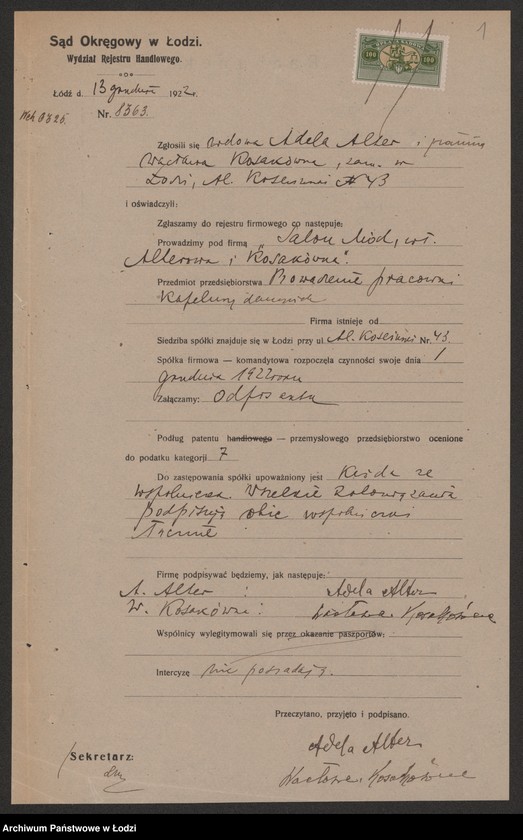 1
Sąd Okręgowy w Łodzi.
Wydział Rejestru Handlowego.
100 100
Łódź d. 13 grudnia 1922 r.
Nr. 8363.
Zgłosili się wdowa Adela Alter i panna
Wacława Kosakówna, zam. w
Łodzi, Al. Kościuszki № 43
i oświadczyli:
Zgłaszamy do rejestru firmowego co następuje:
Prowadzimy pod firmą „Salon Mód, wł.
Alterowa i Kosakówna".
Przedmiot przedsiębiorstwa Prowadzenie pracowni
Kapeluszy damskich
Firma istnieje od
Siedziba spółki znajduje się w Łodzi przy ul. Al. Kościuszki Nr. 43.
Spółka firmowa — komandytowa rozpoczęła czynności swoje dnia 1
grudnia 1922 roku
Załączamy: Odpis aktu
Podług patentu handlowego — przemysłowego przedsiębiorstwo ocenione
do podatku kategorji 7
Do zastępowania spółki upoważniony jest Każda ze
wspólniczek. Wszelkie zobowiązania
podpisują obie wspólniczki
łącznie
Firmę podpisywać będziemy, jak następuje:
A. Alter : Adela Alter
W. Kosakówna : Wacława Kosakówna
Wspólnicy wylegitymowali się przez okazanie paszportów:
Intercyzę nie posiadają.
Przeczytano, przyjęto i podpisano.
Adela Alter
Wacława Kosakówna
Sekretarz:
Archiwum Państwowe w Łodzi